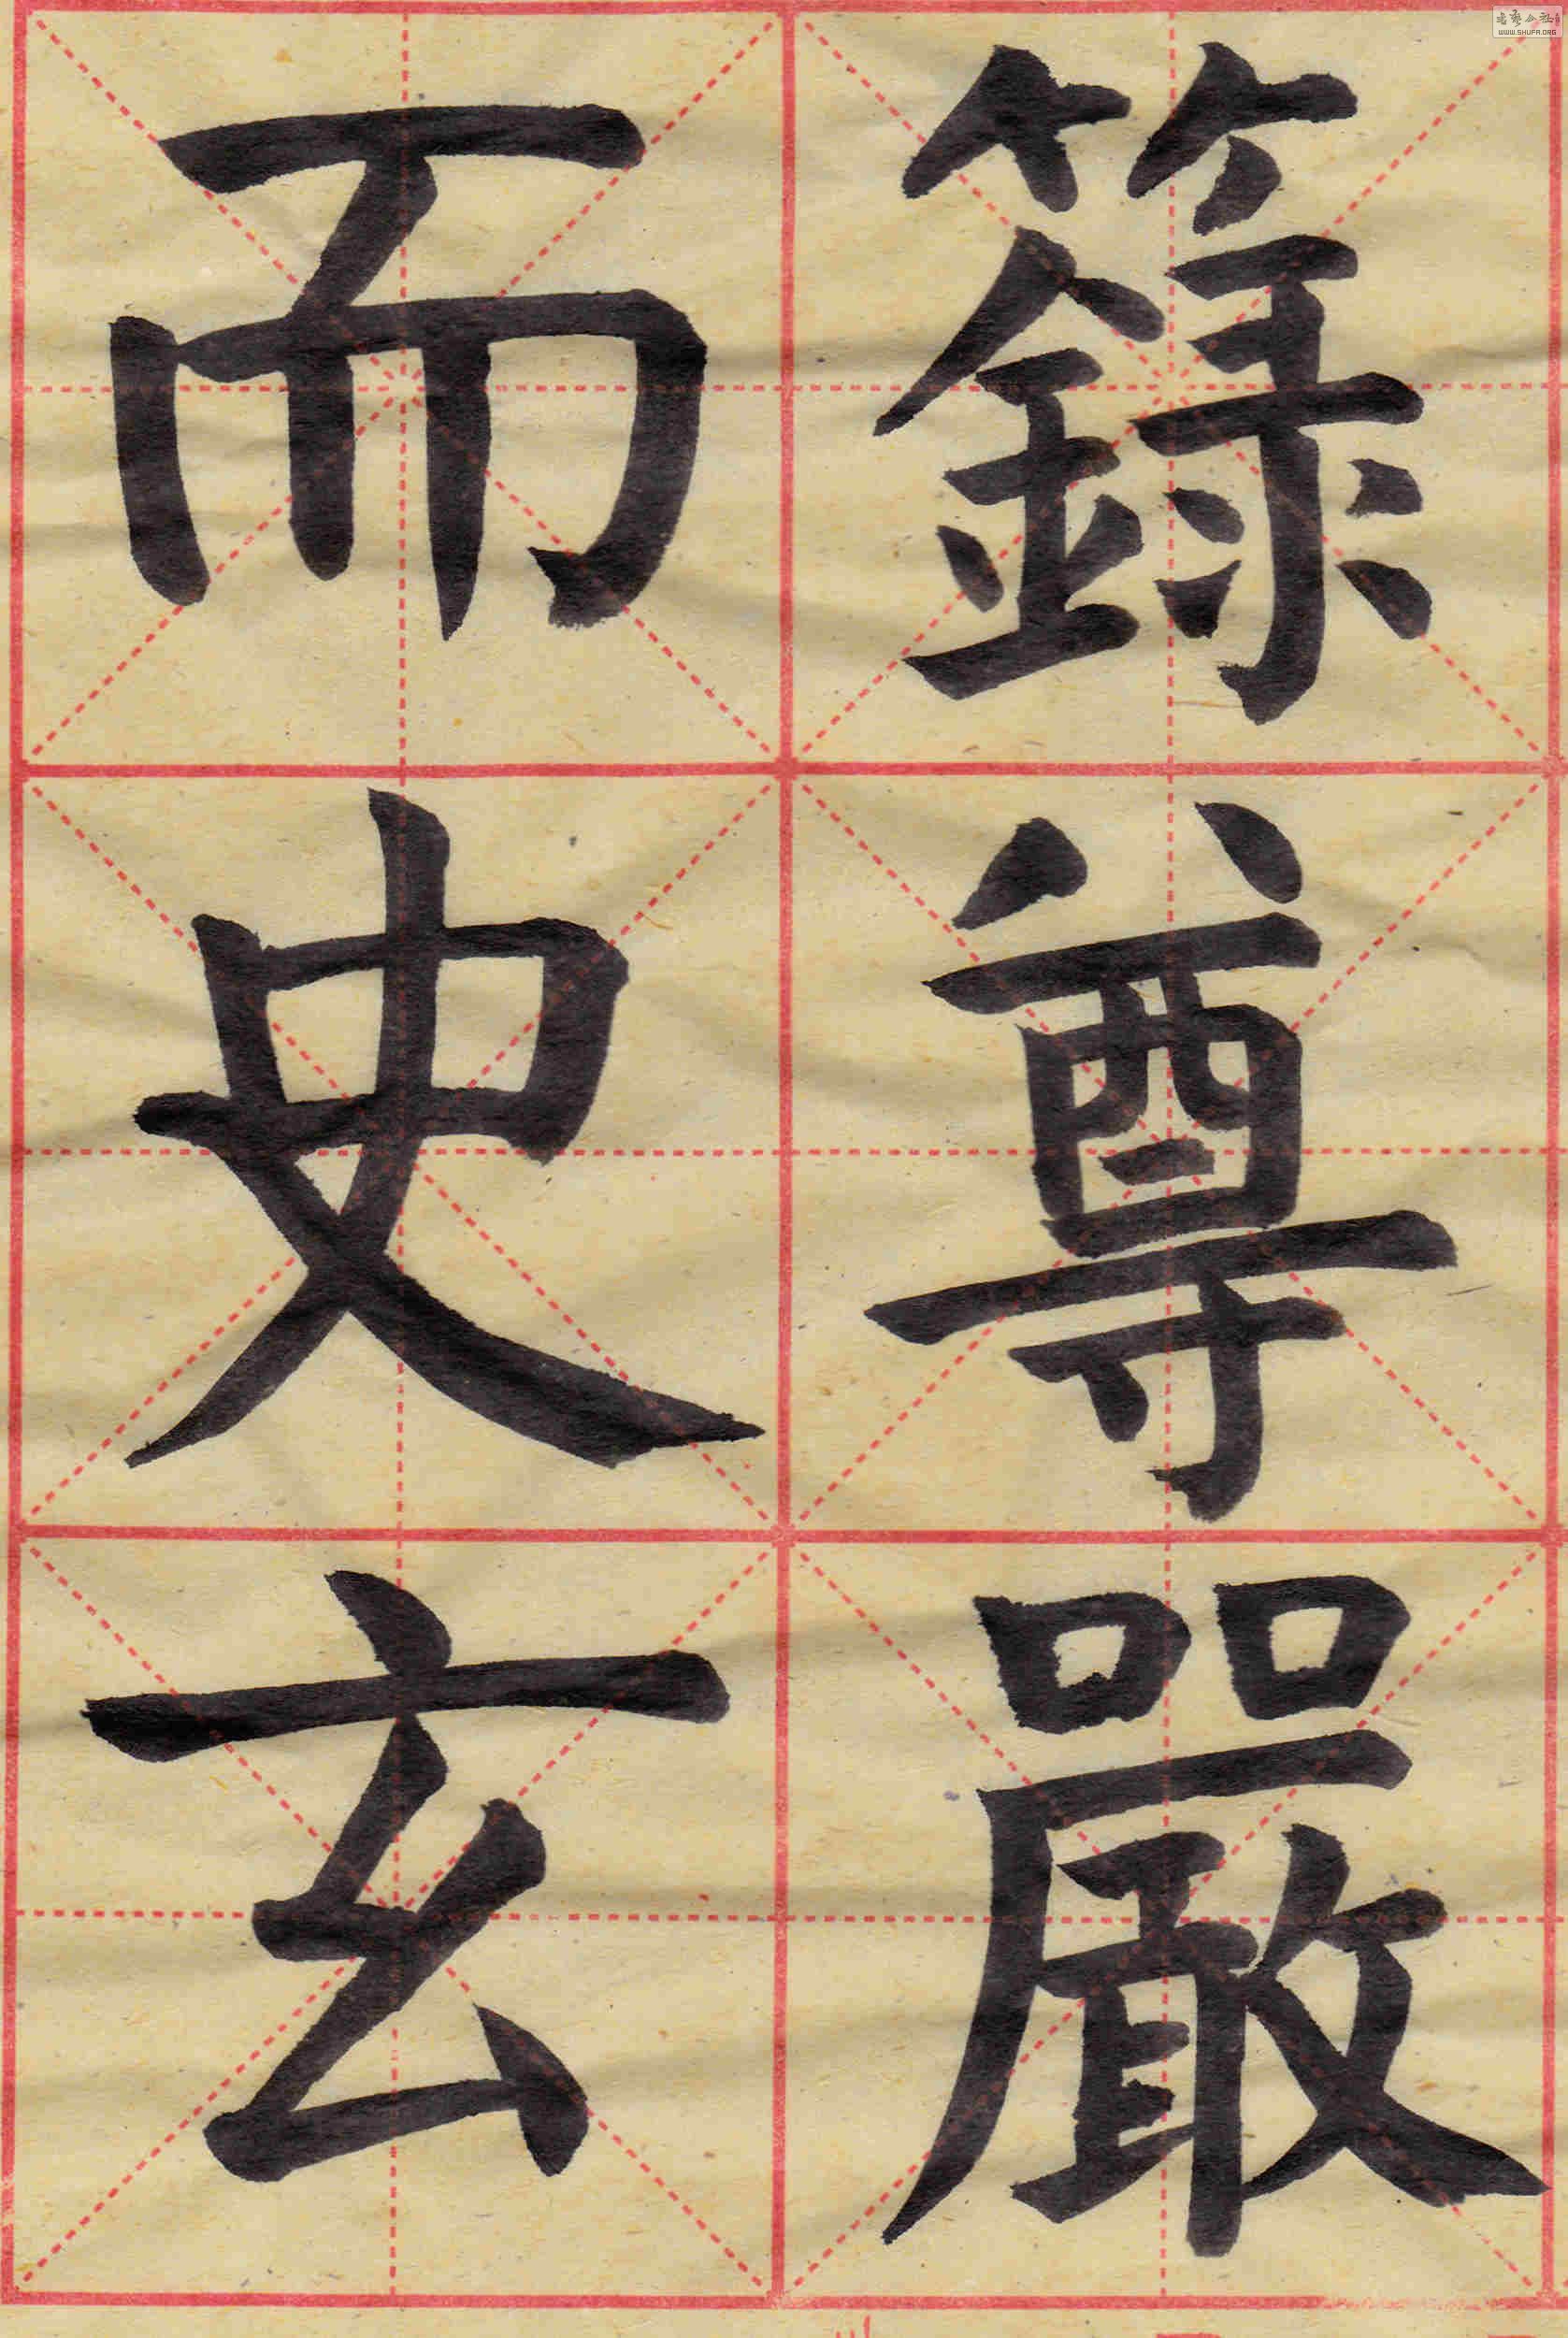 籙尊嚴
而史玄
WWW.SHUFA.ORG